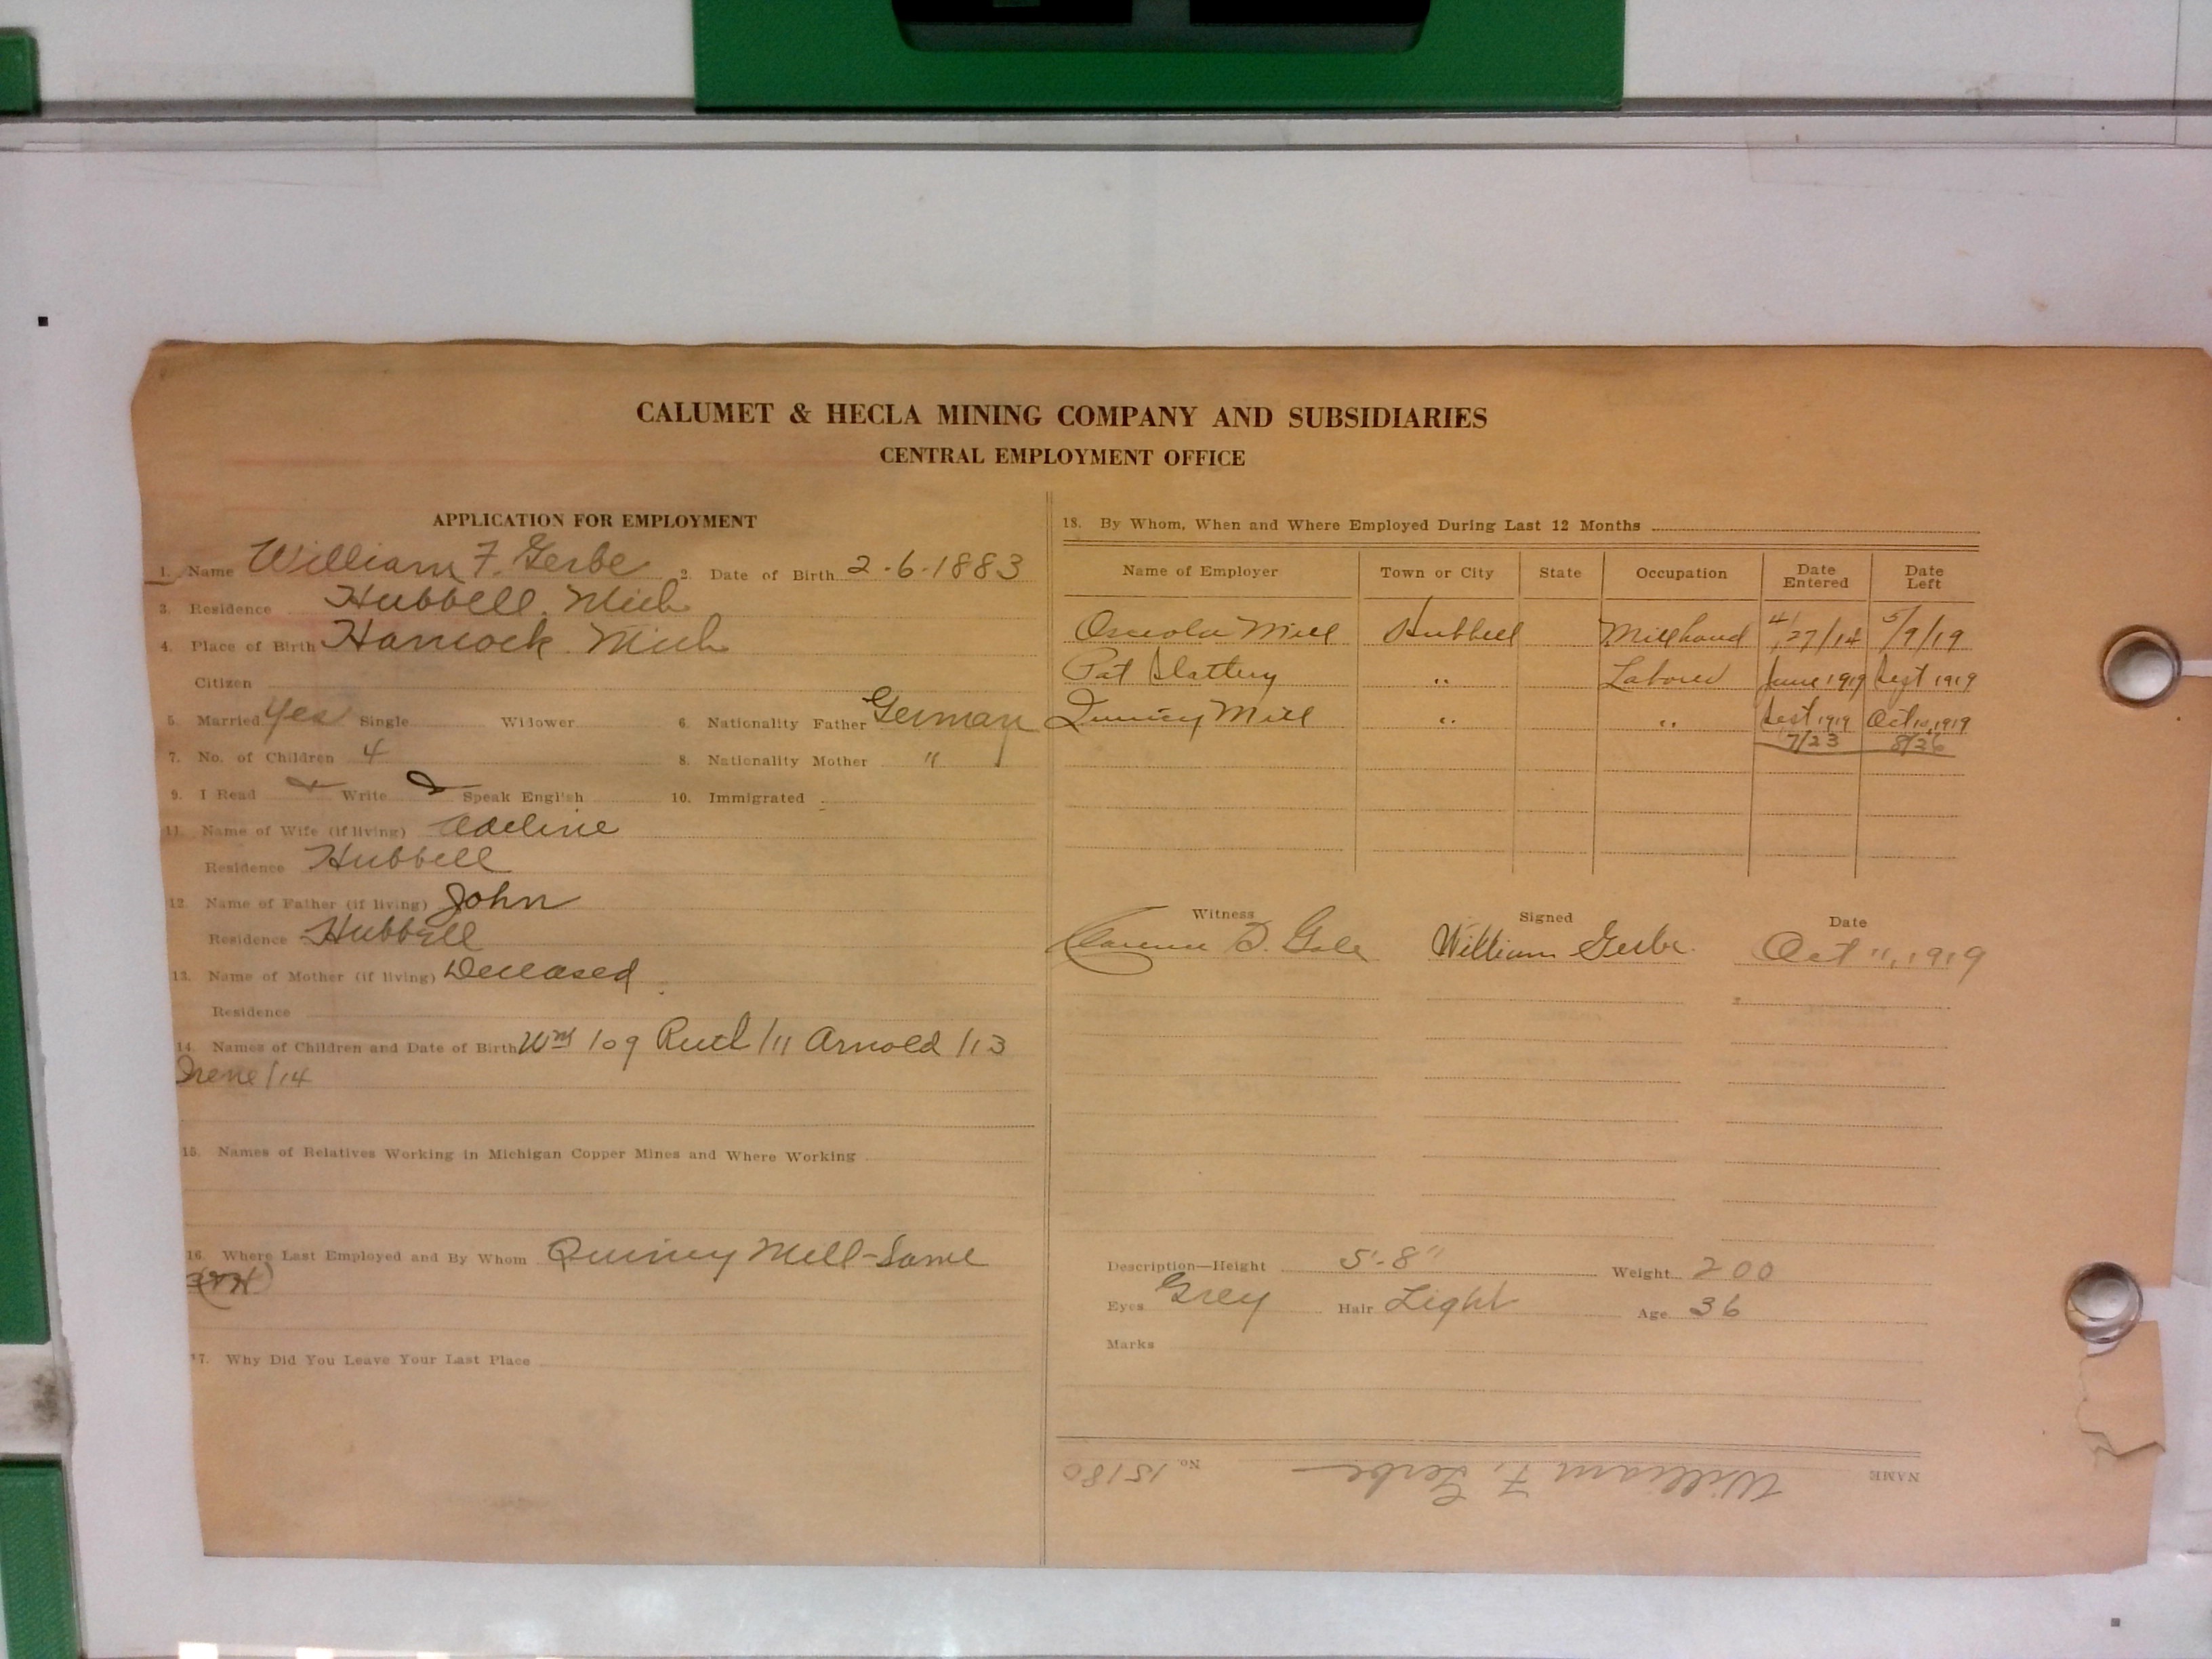 CALUMET & HECLA MINING COMPANY AND SUBSIDIARIES
CENTRAL EMPLOYMENT OFFICE
APPLICATION FOR EMPLOYMENT
1. Name William F. Gerbe 2. Date of Birth 2-6-1883
3. Residence Hubbell, Mich
4. Place of Birth Hancock Mich
Citizen
5. Married yes Single Widower 6. Nationality Father German
7. No. of Children 4 8. Nationality Mother "
9. I Read Write Speak English 10. Immigrated
11. Name of Wife (if living) Adeline
Residence Hubbell
12. Name of Father (if living) John
Residence Hubbell
13. Name of Mother (if living) Deceased
Residence
14. Names of Children and Date of Birth Wm /09 Ruth /11 Arnold /13
Irene /14
15. Names of Relatives Working in Michigan Copper Mines and Where Working
16. Where Last Employed and By Whom Quincy Mill-Same
17. Why Did You Leave Your Last Place
18. By Whom, When and Where Employed During Last 12 Months
Name of Employer Town or City State Occupation Date Entered Date Left
Osceola Mill Hubbell Millhand 4/27/14 5/9/19
Pat Slattery " Laborer June 1919 Sept 1919
Quincy Mill " " Sept 1919 Oct 10, 1919
7/23 8/26
Witness Signed Date
Clarence D. Gale William Gerbe. Oct 11, 1919
Description—Height 5'-8" Weight 200
Eyes Grey Hair Light Age 36
Marks
NAME William F. Gerbe No. 15180